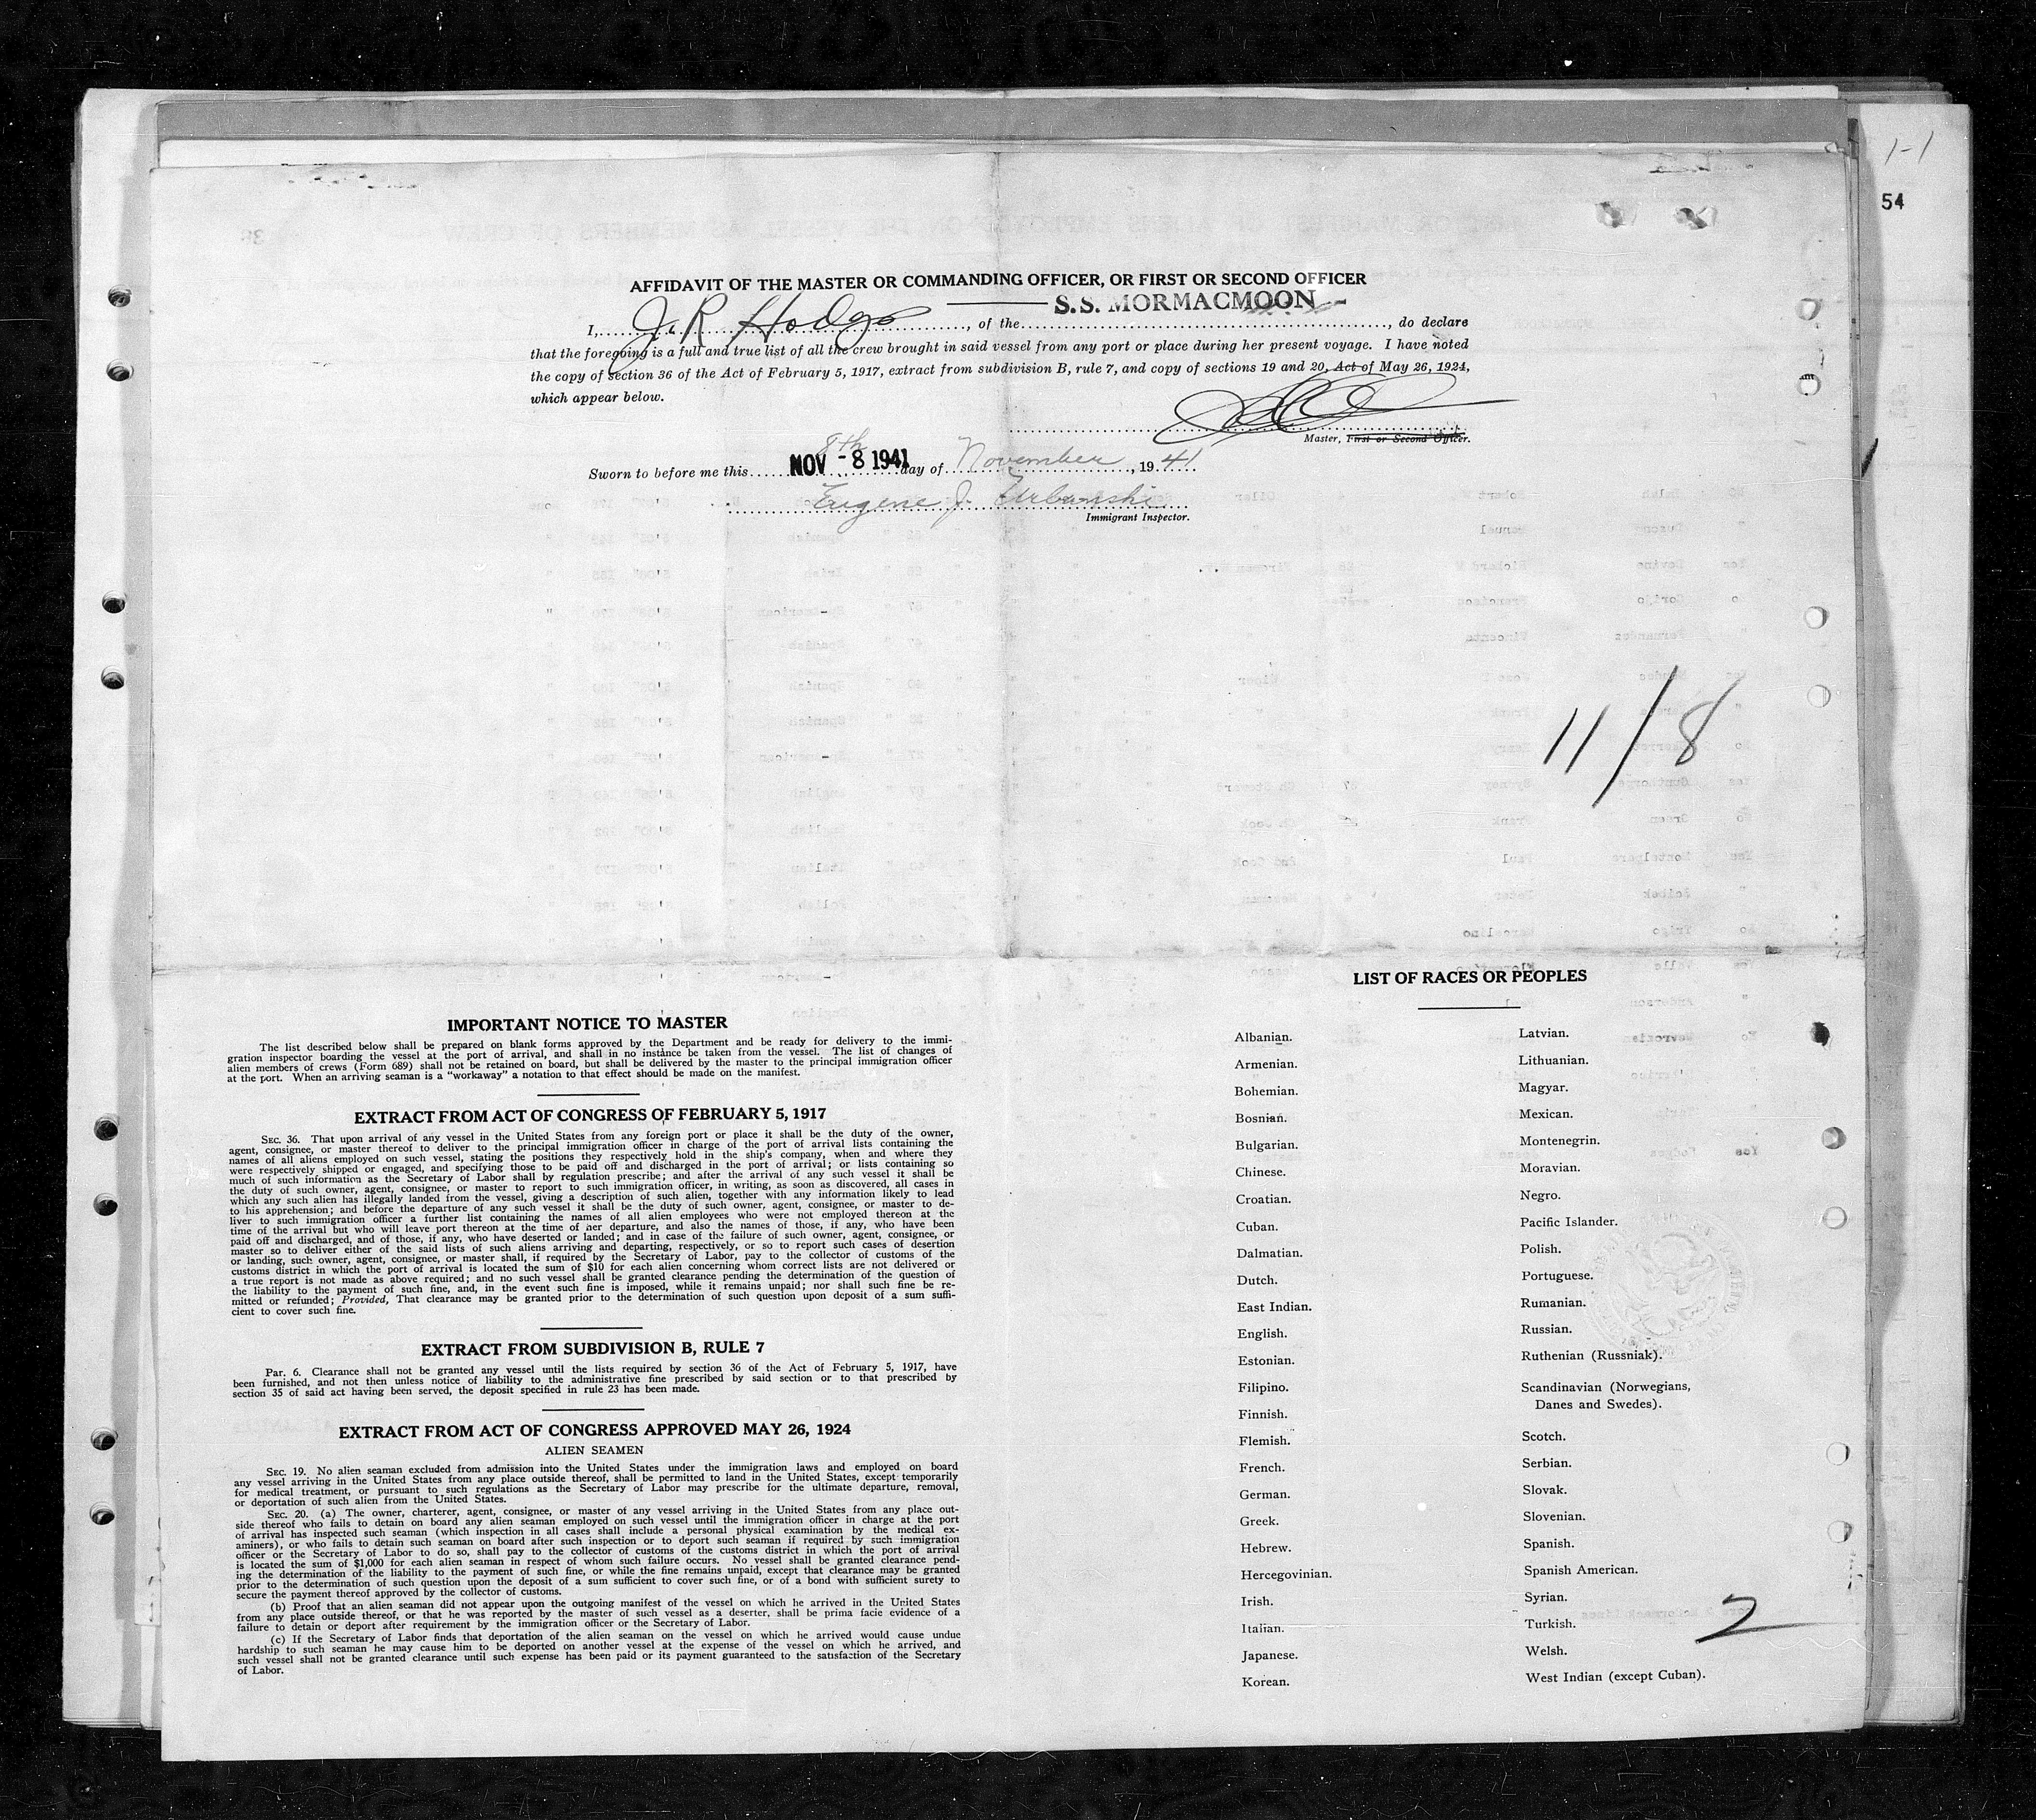 1-1
54
AFFIDAVIT OF THE MASTER OR COMMANDING OFFICER, OR FIRST OR SECOND OFFICER
S.S. MORMACMOON
I, J. R Hodge, of the, do declare
that the foregoing is a full and true list of all the crew brought in said vessel from any port or place during her present voyage. I have noted
the copy of section 36 of the Act of February 5, 1917, extract from subdivision B, rule 7, and copy of sections 19 and 20, Act of May 26, 1924,
which appear below.
Master, First or Second Officer.
8th
Sworn to before me this NOV - 8 1941 day of November, 1941
Eugene J. Urbanski
Immigrant Inspector.
11/8
IMPORTANT NOTICE TO MASTER
The list described below shall be prepared on blank forms approved by the Department and be ready for delivery to the immi-
gration inspector boarding the vessel at the port of arrival, and shall in no instance be taken from the vessel. The list of changes of
alien members of crews (Form 689) shall not be retained on board, but shall be delivered by the master to the principal immigration officer
at the port. When an arriving seaman is a "workaway" a notation to that effect should be made on the manifest.
EXTRACT FROM ACT OF CONGRESS OF FEBRUARY 5, 1917
SEC. 36. That upon arrival of any vessel in the United States from any foreign port or place it shall be the duty of the owner,
agent, consignee, or master thereof to deliver to the principal immigration officer in charge of the port of arrival lists containing the
names of all aliens employed on such vessel, stating the positions they respectively hold in the ship's company, when and where they
were respectively shipped or engaged, and specifying those to be paid off and discharged in the port of arrival; or lists containing so
much of such information as the Secretary of Labor shall by regulation prescribe; and after the arrival of any such vessel it shall be
the duty of such owner, agent, consignee, or master to report to such immigration officer, in writing, as soon as discovered, all cases in
which any such alien has illegally landed from the vessel, giving a description of such alien, together with any information likely to lead
to his apprehension; and before the departure of any such vessel it shall be the duty of such owner, agent, consignee, or master to de-
liver to such immigration officer a further list containing the names of all alien employees who were not employed thereon at the
time of the arrival but who will leave port thereon at the time of her departure, and also the names of those, if any, who have been
paid off and discharged, and of those, if any, who have deserted or landed; and in case of the failure of such owner, agent, consignee, or
master so to deliver either of the said lists of such aliens arriving and departing, respectively, or so to report such cases of desertion
or landing, such owner, agent, consignee, or master shall, if required by the Secretary of Labor, pay to the collector of customs of the
customs district in which the port of arrival is located the sum of $10 for each alien concerning whom correct lists are not delivered or
a true report is not made as above required; and no such vessel shall be granted clearance pending the determination of the question of
the liability to the payment of such fine, and, in the event such fine is imposed, while it remains unpaid; nor shall such fine be re-
mitted or refunded; Provided, That clearance may be granted prior to the determination of such question upon deposit of a sum suffi-
cient to cover such fine.
EXTRACT FROM SUBDIVISION B, RULE 7
Par. 6. Clearance shall not be granted any vessel until the lists required by section 36 of the Act of February 5, 1917, have
been furnished, and not then unless notice of liability to the administrative fine prescribed by said section or to that prescribed by
section 35 of said act having been served, the deposit specified in rule 23 has been made.
EXTRACT FROM ACT OF CONGRESS APPROVED MAY 26, 1924
ALIEN SEAMEN
SEC. 19. No alien seaman excluded from admission into the United States under the immigration laws and employed on board
any vessel arriving in the United States from any place outside thereof, shall be permitted to land in the United States, except temporarily
for medical treatment, or pursuant to such regulations as the Secretary of Labor may prescribe for the ultimate departure, removal,
or deportation of such alien from the United States.
SEC. 20. (a) The owner, charterer, agent, consignee, or master of any vessel arriving in the United States from any place out-
side thereof who fails to detain on board any alien seaman employed on such vessel until the immigration officer in charge at the port
of arrival has inspected such seaman (which inspection in all cases shall include a personal physical examination by the medical ex-
aminers), or who fails to detain such seaman on board after such inspection or to deport such seaman if required by such immigration
officer or the Secretary of Labor to do so, shall pay to the collector of customs of the customs district in which the port of arrival
is located the sum of $1,000 for each alien seaman in respect of whom such failure occurs. No vessel shall be granted clearance pend-
ing the determination of the liability to the payment of such fine, or while the fine remains unpaid, except that clearance may be granted
prior to the determination of such question upon the deposit of a sum sufficient to cover such fine, or of a bond with sufficient surety to
secure the payment thereof approved by the collector of customs.
(b) Proof that an alien seaman did not appear upon the outgoing manifest of the vessel on which he arrived in the United States
from any place outside thereof, or that he was reported by the master of such vessel as a deserter, shall be prima facie evidence of a
failure to detain or deport after requirement by the immigration officer or the Secretary of Labor.
(c) If the Secretary of Labor finds that deportation of the alien seaman on the vessel on which he arrived would cause undue
hardship to such seaman he may cause him to be deported on another vessel at the expense of the vessel on which he arrived, and
such vessel shall not be granted clearance until such expense has been paid or its payment guaranteed to the satisfaction of the Secretary
of Labor.
LIST OF RACES OR PEOPLES
Albanian.
Armenian.
Bohemian.
Bosnian.
Bulgarian.
Chinese.
Croatian.
Cuban.
Dalmatian.
Dutch.
East Indian.
English.
Estonian.
Filipino.
Finnish.
Flemish.
French.
German.
Greek.
Hebrew.
Hercegovinian.
Irish.
Italian.
Japanese.
Korean.
Latvian.
Lithuanian.
Magyar.
Mexican.
Montenegrin.
Moravian.
Negro.
Pacific Islander.
Polish.
Portuguese.
Rumanian.
Russian.
Ruthenian (Russniak).
Scandinavian (Norwegians,
Danes and Swedes).
Scotch.
Serbian.
Slovak.
Slovenian.
Spanish.
Spanish American.
Syrian.
Turkish.
Welsh.
West Indian (except Cuban).
2